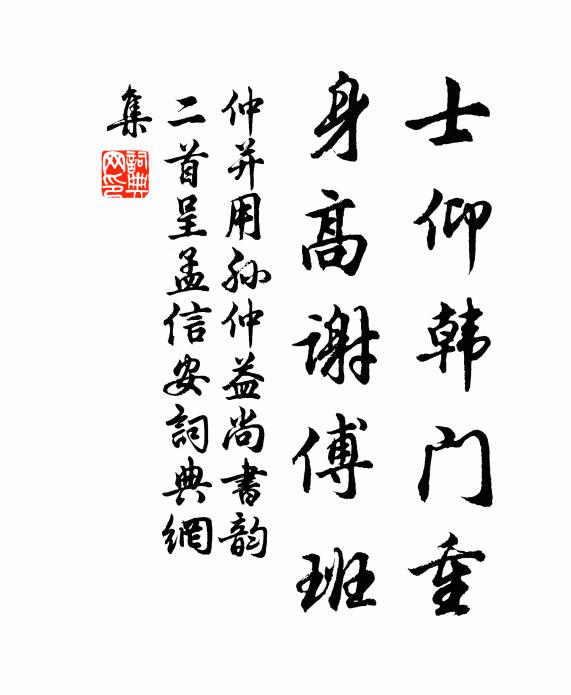 士仰韩门重
身高谢傅班
仲并用孙仲益尚書韵
二首呈孟信安詞典網
集
詞典网印